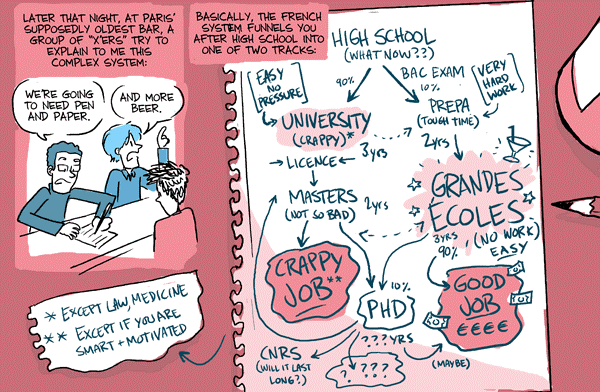 LATER THAT NIGHT, AT PARIS'
SUPPOSEDLY OLDEST BAR, A
GROUP OF "X'ERS" TRY TO
EXPLAIN TO ME THIS
COMPLEX SYSTEM:
WE'RE GOING
TO NEED PEN
AND PAPER.
AND MORE
BEER.
BASICALLY, THE FRENCH
SYSTEM FUNNELS YOU
AFTER HIGH SCHOOL INTO
ONE OF TWO TRACKS:
HIGH SCHOOL
(WHAT NOW??)
EASY
NO
PRESSURE
90%
BAC EXAM
10%
VERY
HARD
WORK
UNIVERSITY
(CRAPPY)*
PREPA
(TOUGH TIME)
3yrs
2yrs
LICENCE
MASTERS
(NOT SO BAD)
2yrs
GRANDES
ÉCOLES
3yrs
90%
(NO WORK)
EASY
CRAPPY
JOB**
10%
PHD
GOOD
JOB
€€€€
???YRS
(MAYBE)
CNRS
(WILL IT LAST
LONG?)
? ???
* EXCEPT LAW, MEDICINE
** EXCEPT IF YOU ARE
SMART + MOTIVATED